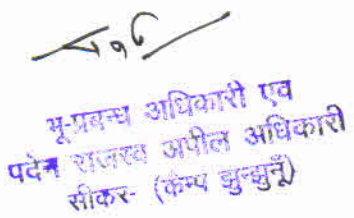 भू-प्रबन्ध अधिकारी एवं
पदेन राजस्व अपील अधिकारी
सीकर- (कैम्प झुन्झुनूँ)